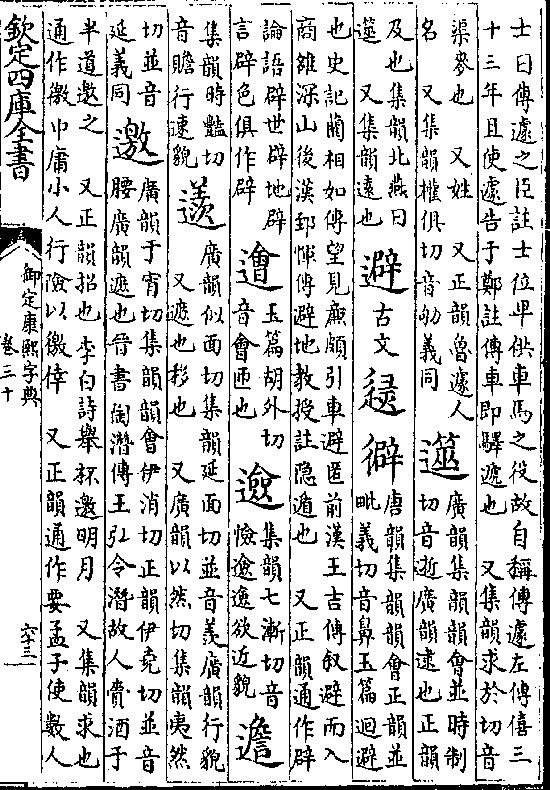 士曰傳遽之臣註士位卑供車馬之役故自稱傳遽左傳僖三
十三年且使遽告于鄭註傳車即驛遞也 又集韻求於切音
渠麥也 又姓 又正韻魯遽人
名 又集韻權俱切音劬義同
遾
廣韻集韻韻會並時制
切音逝廣韻逮也正韻
及也集韻北燕曰
遾 又集韻遠也
避 古文 僻
唐韻集韻韻會正韻並
毗義切音鼻玉篇迴避
也史記藺相如傳望見廉頗引車避匿前漢王吉傳叙避而入
商雒深山後漢郅惲傳避地教授註隱遁也 又正韻通作辟
論語辟世辟地辟
言辟色俱作辟
玉篇胡外切
音會匝也
集韻七漸切音
憸逾逸欲近貌
集韻時豔切
音贍行速貌
廣韻似面切集韻延面切並音羨廣韻行貌
又遮也移也 又廣韻以然切集韻夷然
切並音
延義同
邀
廣韻于宵切集韻韻會伊消切正韻伊堯切並音
腰廣韻遮也晉書陶潛傳王弘令潛故人賫酒于
半道邀之 又正韻招也李白詩舉杯邀明月 又集韻求也
通作徼中庸小人行險以徼倖 又正韻通作要孟子使數人
欽定四庫全書
御定康熙字典
卷三十
六十三